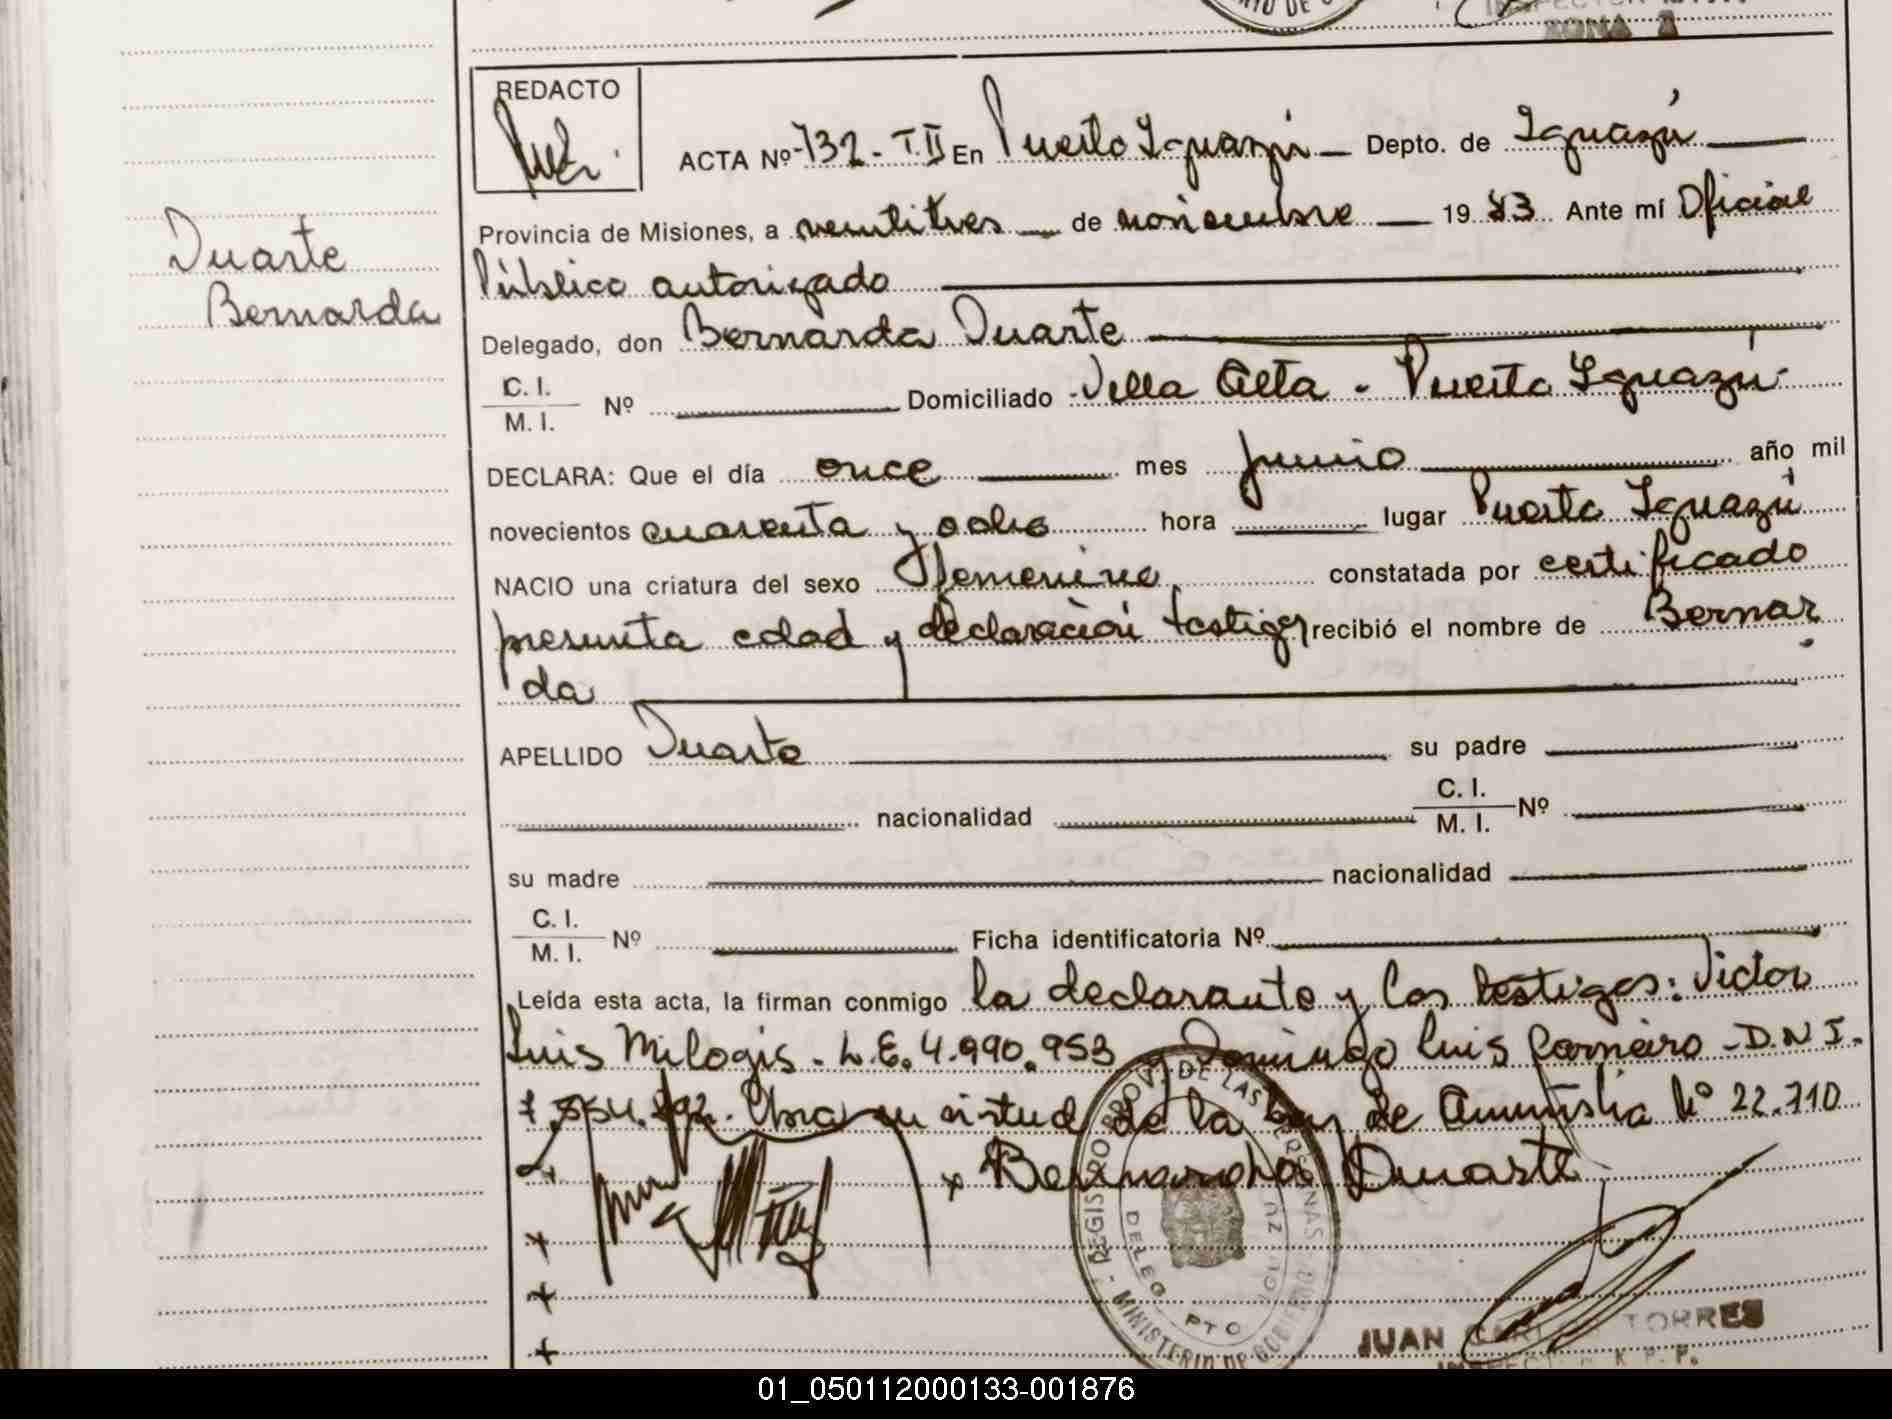 ZONA
REDACTO
ACTA Nº 732 - T. II En Puerto Iguazú Depto. de Iguazú
Provincia de Misiones, a veintitres de noviembre 19 83 Ante mí Oficial
Público autorizado
Duarte
Bernarda
Delegado, don Bernarda Duarte
C. I.
M. I. Nº Domiciliado Villa Alta - Puerto Iguazú
DECLARA: Que el día once mes junio año mil
novecientos cuarenta y ocho hora lugar Puerto Iguazú
NACIO una criatura del sexo femenino constatada por certificado
presunta edad y declaración testigos recibió el nombre de Bernar
da
APELLIDO Duarte su padre
nacionalidad C. I.
M. I. Nº
su madre nacionalidad
C. I.
M. I. Nº Ficha identificatoria Nº
Leída esta acta, la firman conmigo la declarante y los testigos: Victor
Luis Milogis - L.E. 4.990.953 y Domingo Luis Carneiro - D.N.I.
Obra en virtud de la Ley de Amnistia Nº 22.710
x Bernarda Duarte
REGISTRO PROV. DE LAS PERSONAS - MINISTERIO DE GOBIERNO
DELEG. PTO. IGUAZU
JUAN TORRES
01_050112000133-001876